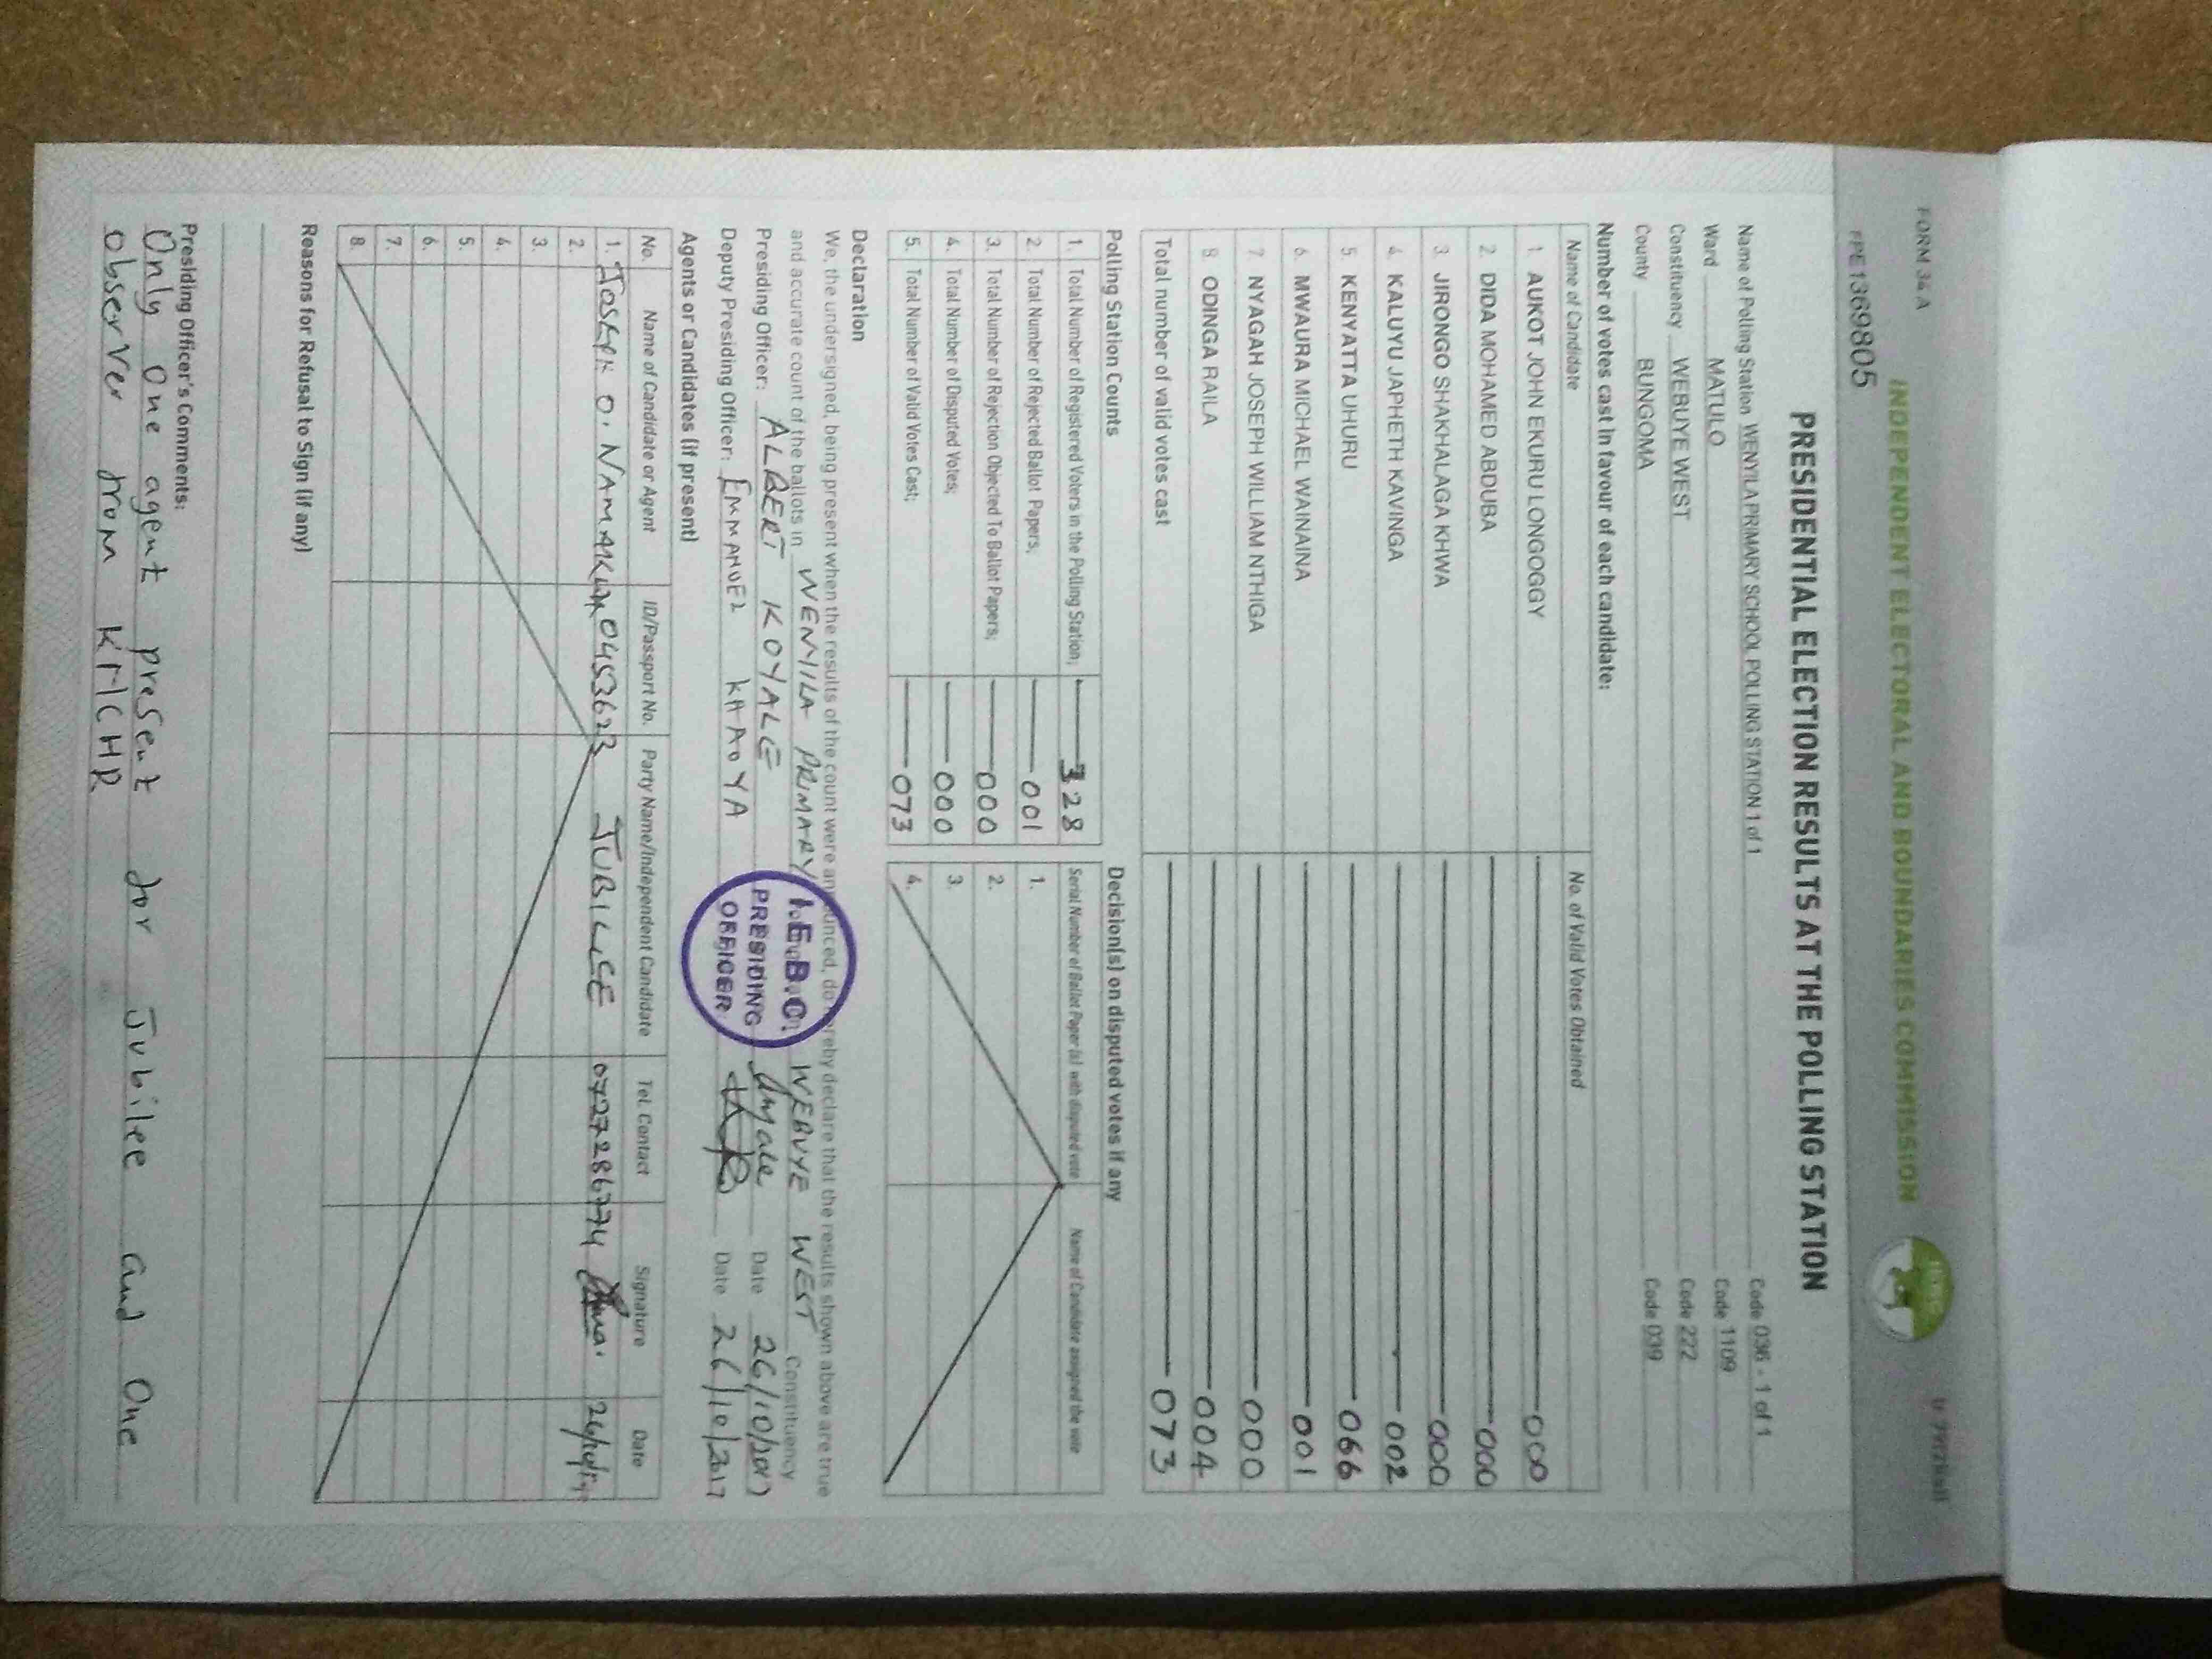 FORM 34 A
INDEPENDENT ELECTORAL AND BOUNDARIES COMMISSION
FPE1369805
PRESIDENTIAL ELECTION RESULTS AT THE POLLING STATION
Name of Polling Station WENYILA PRIMARY SCHOOL POLLING STATION 1 of 1 Code 036 - 1 of 1
Ward MATULO Code 1109
Constituency WEBUYE WEST Code 222
County BUNGOMA Code 039
Number of votes cast in favour of each candidate:
Name of Candidate No. of Valid Votes Obtained
1. AUKOT JOHN EKURU LONGOGGY 000
2. DIDA MOHAMED ABDUBA 000
3. JIRONGO SHAKHALAGA KHWA 000
4. KALUYU JAPHETH KAVINGA 002
5 KENYATTA UHURU 066
6 MWAURA MICHAEL WAINAINA 001
7 NYAGAH JOSEPH WILLIAM NTHIGA 000
8 ODINGA RAILA 004
Total number of valid votes cast 073
Polling Station Counts Decision(s) on disputed votes if any
1. Total Number of Registered Voters in the Polling Station; 328 Serial Number of Ballot Paper (s) with disputed vote Name of Candidate assigned the vote
2. Total Number of Rejected Ballot Papers; 001 1.
3. Total Number of Rejection Objected To Ballot Papers; 000 2.
4. Total Number of Disputed Votes; 000 3.
5. Total Number of Valid Votes Cast; 073 4.
Declaration
We, the undersigned, being present when the results of the count were announced, do hereby declare that the results shown above are true
and accurate count of the ballots in WENYILA PRIMARY WEBUYE WEST Constituency
Presiding Officer: ALBERT KOYALE Date 26/10/2017
Deputy Presiding Officer: EMMANUEL Date 26/10/2017
I.E.B.C.
PRESIDING
OFFICER
Agents or Candidates (if present)
No. Name of Candidate or Agent ID/Passport No. Party Name/Independent Candidate Tel. Contact Signature Date
1. JOSEPH O. 0453623 JUBILEE 0727286774 26/10/17
2.
3.
4.
5.
6.
7.
8.
Reasons for Refusal to Sign (if any)
Presiding Officer's Comments:
Only one agent present for Jubilee and One
observer from KNCHR